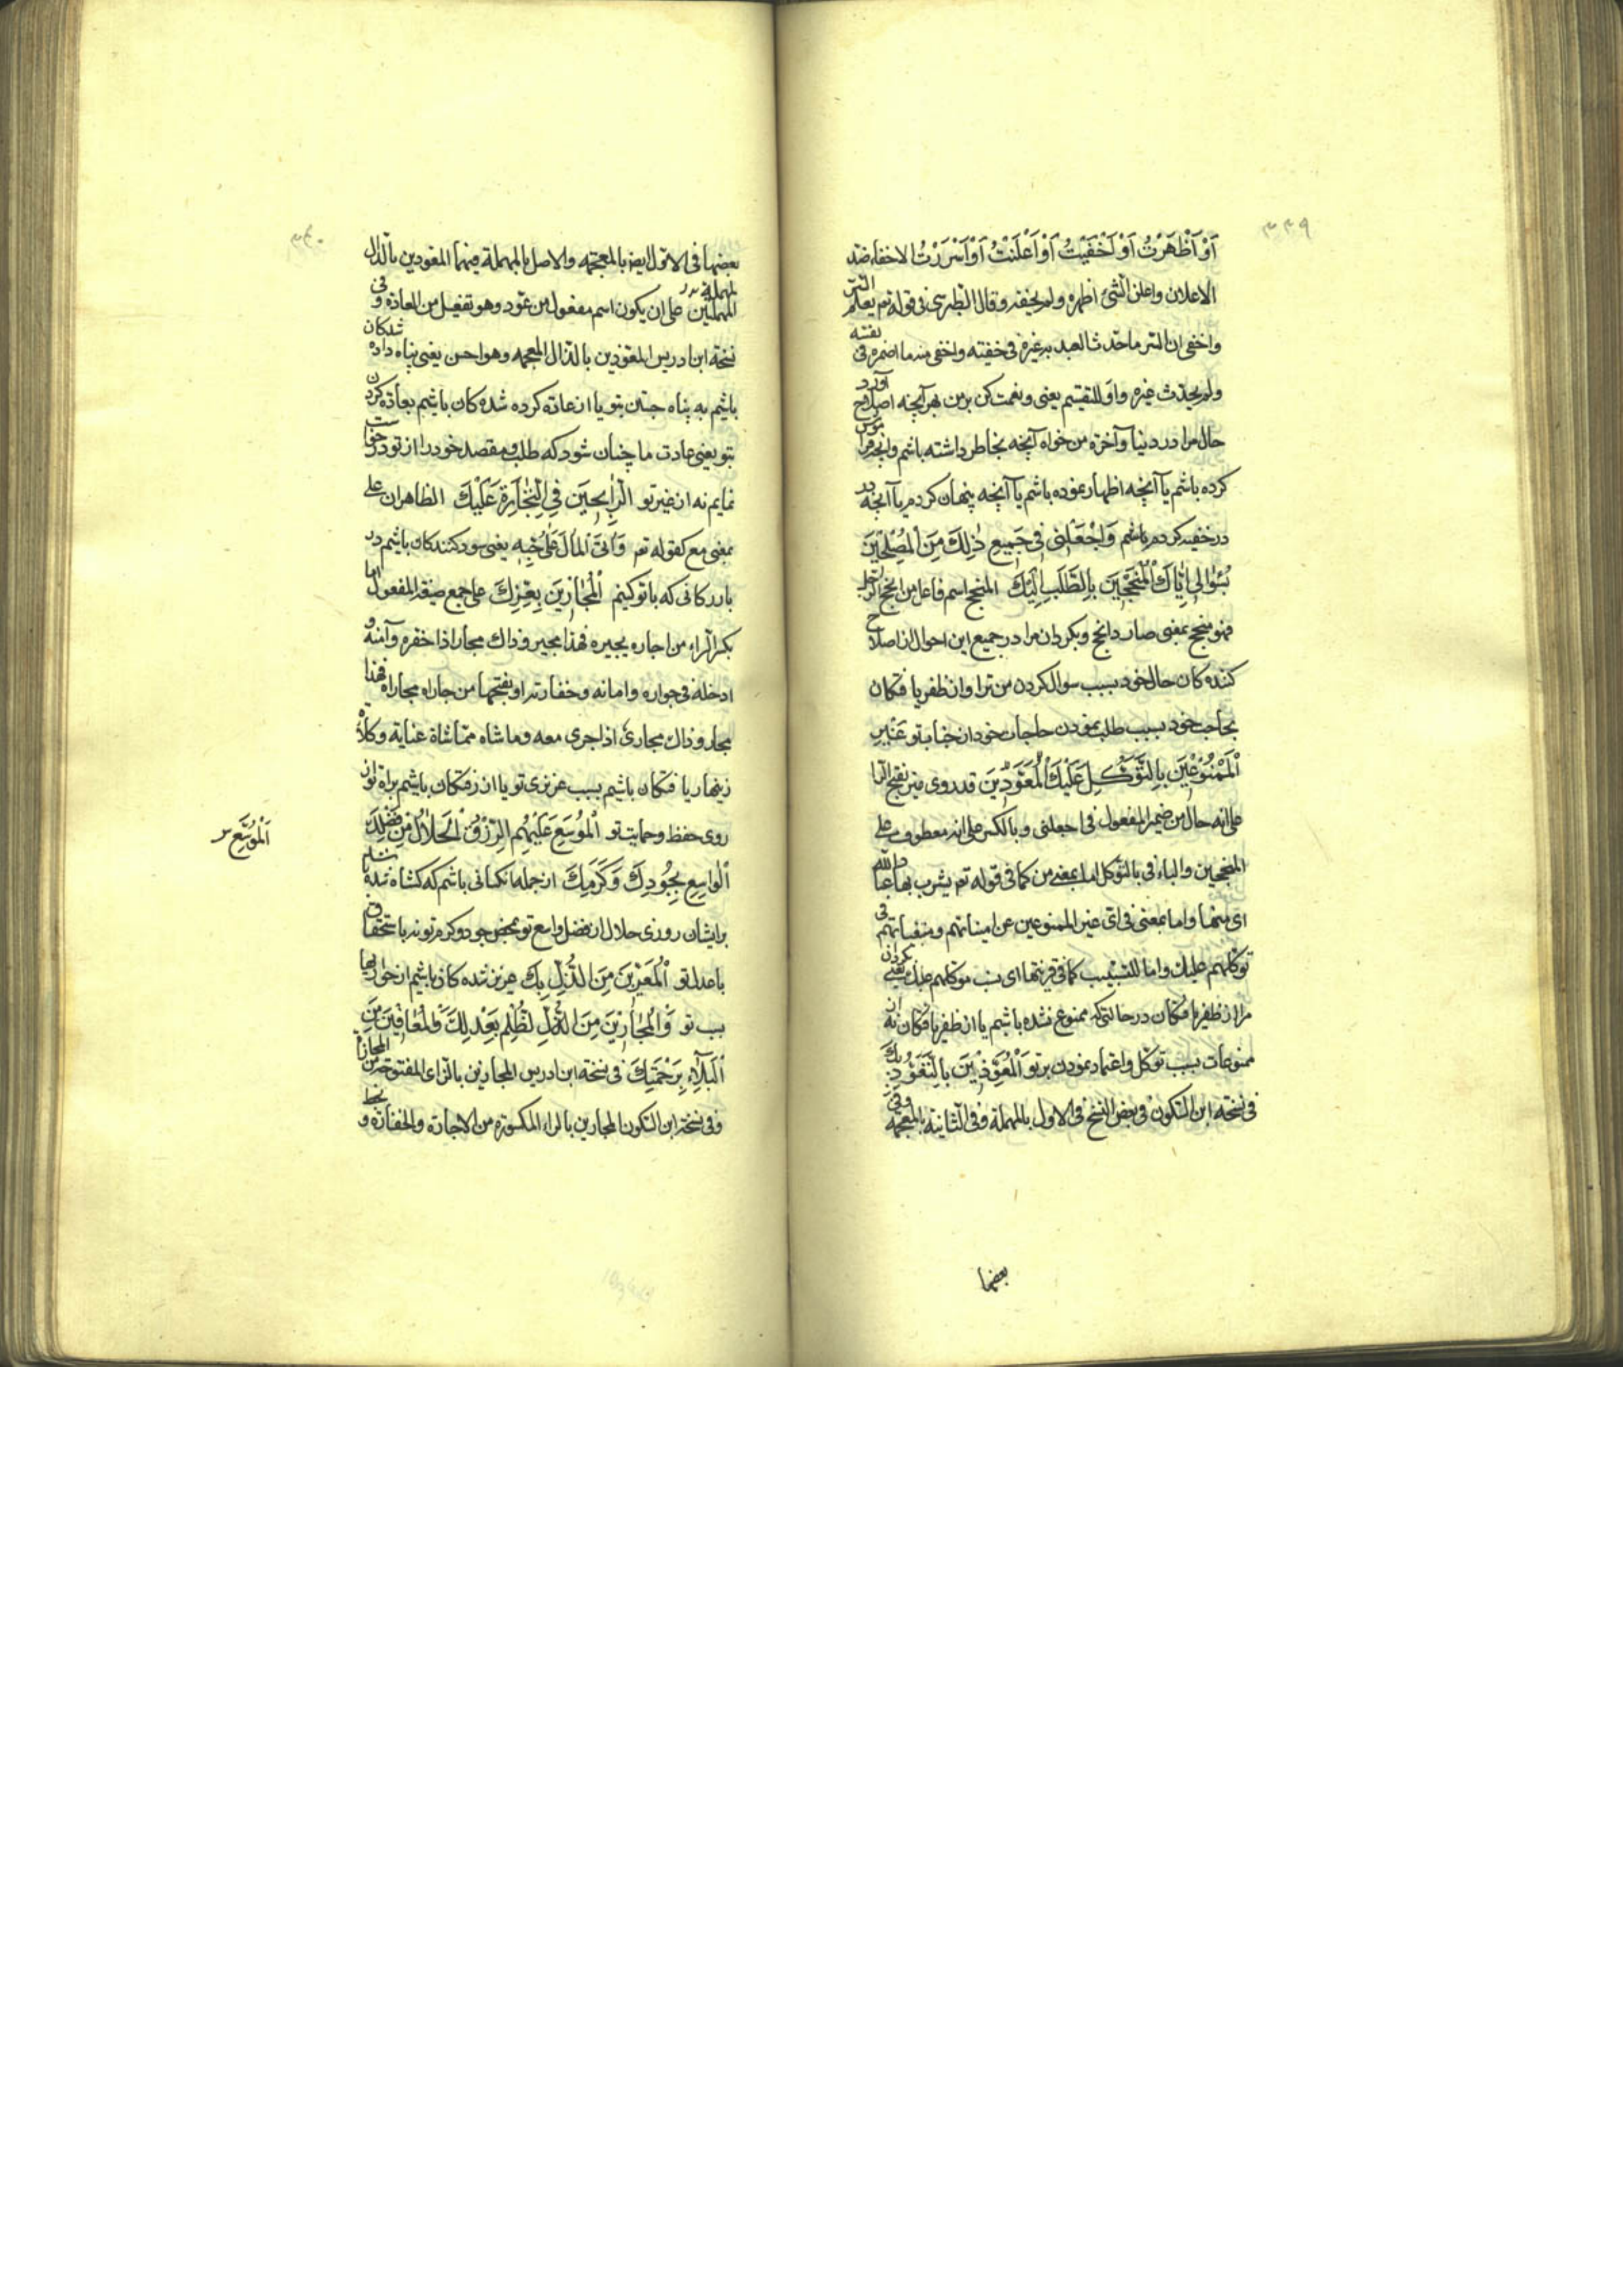 ٣٣٩
أَوْ أَظْهَرْتُ أَوْ أَخْفَيْتُ أَوْ أَعْلَنْتُ أَوْ أَسْرَرْتُ الاخفاء ضد
الاعلان واعلن الشئ اظهره ولم يخفه وقال الطبرسى فى قوله تعم يعلم السّر
واخفى ان السّر ما حدّث العبد به غيره فى خفيته واخفى منه ما اضمره فى نفسه
ولم يحدّث غيره واو للتقسيم يعنى ونعمت كن بر من بهر آنچه اصلاح آورد
حال مرا در دنيا و آخرة من خواه آنچه بخاطر داشته باشم وآنچه فراموش
كرده باشم يا آنچه اظهار نموده باشم يا آنچه پنهان كردم يا آنچه در
در خفيه كرده باشم وَاجْعَلْنِى فِى جَمِيعِ ذٰلِكَ مِنَ الْمُصْلِحِينَ
بِسُؤٰالِى اِيّٰاكَ الْمُنْجِحِينَ بِالطَّلَبِ اِلَيْكَ المنجح اسم فاعل من انجح الرّجل
فهو منجح بمعنى صار ذا نجح وبكردان مرا در جميع اين احوال از اصلاح
كننده كان حال خود بسبب سوال كردن من ترا و از ظفر يافتكان
بحاجت خود بسبب طلب نمودن حاجات خود از جناب تو غَيْرِ
الْمَمْنُوعِينَ بِالتَّوَكُّلِ عَلَيْكَ الْمُعَوَّدِينَ قد روى غير بفتح الرّا
على انه حال من ضمير المفعول فى اجعلنى وبالكسر على انه معطوف على
المنجحين والباء فى بالتوكل اما بمعنى من كما فى قوله تعم يشرب بها عباد الله
اى منها واما بمعنى فى اى غير الممنوعين عن امنياتهم ومبتغياتهم فى
توكلهم عليك واما للتسبيب كما فى قرينتها اى بسبب توكلهم عليك يعنى بكردان
مرا از ظفر يافتكان در حالتى كه ممنوع نشده باشم يا از ظفر يافتكان نه از
ممنوعات بسبب توكل و اعتماد نمودن بر تو الْمُعَوَّذِينَ بِالتَّعَوُّذِ بِكَ
فى نسخه ابن السّكون فى بعض النسخ فى الاول بالمهملة وفى الثانية بالمعجمه وفى
بعضها
٣٤٠
بعضها فى الاول ايضا بالمعجمه والاصل بالمهملة فيهما المعودين بالدّال
المهملتين على ان يكون اسم مفعول من عوّد وهو تفعيل من العادة وفى
نسخة ابن ادريس المعوّذين بالذال المعجمه وهو احسن يعنى پناه داده شدكان
باشيم به پناه جستن بتو يا از عادة كرده شده كان باشيم بعادة كردن
بتو يعنى عادت ما چنان شود كه طلب ومقصد خود را از تو درخواست
نمايم نه از غير تو الرّٰابِحِينَ فِى التِّجٰارَةِ عَلَيْكَ الظاهر ان على
بمعنى مع كقوله تعم وَآتَى الْمٰالَ عَلىٰ حُبِّهِ يعنى سود كنندكان باشيم در
بازركانى كه با تو كنيم الْمُجٰارِينَ بِعِزِّكَ على جمع صيغة المفعول اما
بكسر الراء من اجاره يجيره فهذا مجير وذاك مجار اذا خفره وآمنه و
ادخله فى جواره وامانه وخفارته او بفتحها من جاراه مجاراه فهذا
مجار وذاك مجارى اذا جرى معه وماشاه مماشاة عناية وكلأ
زينهار يافتكان باشيم بسبب عزيزى تو يا از رفتكان باشيم براه تو از
روى حفظ وحمايت تو الْمُوَسَّعِ عَلَيْهِمُ الرِّزْقُ الْحَلٰالُ مِنْ فَضْلِكَ
الْوٰاسِعِ بِجُودِكَ وَكَرَمِكَ از جمله آنكسانى باشم كه كشاده شده باشد
برايشان روزى حلال از فضل واسع تو بمحض جود و كرم تو نه باستحقاق
الْمُوَسَّعِ
با عدل تو الْمُعَزِّينَ مِنَ الذُّلِّ بِكَ عزيز شده كان باشيم از خواريها
بسبب تو وَالْمُجٰارِينَ مِنَ الظُّلْمِ بِعَدْلِكَ وَالْمُعٰافَيْنَ مِنَ
الْبَلٰاءِ بِرَحْمَتِكَ فى نسخه ابن ادريس المجازين بالزاى المفتوحة من المجازاة
وفى نسخة ابن السّكون المجارين بالراء المكسورة من الاجارة والخفارة و بخط